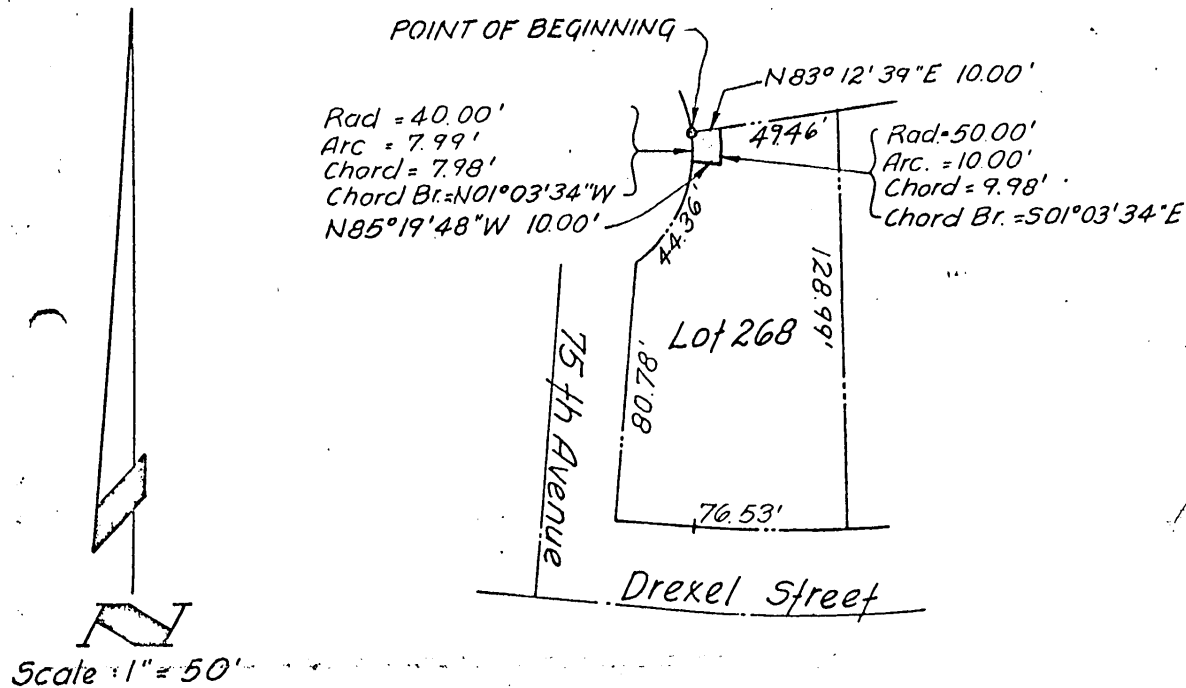 POINT OF BEGINNING
N83°12'39"E 10.00'
Rad = 40.00'
Arc = 7.99'
Chord = 7.98'
Chord Br.=N01°03'34"W
N85°19'48"W 10.00'
49.46'
Rad.=50.00'
Arc. = 10.00'
Chord = 9.98'
Chord Br. =S01°03'34"E
44.36'
128.99'
Lot 268
80.78'
75th Avenue
76.53'
Drexel Street
N
Scale : 1" = 50'